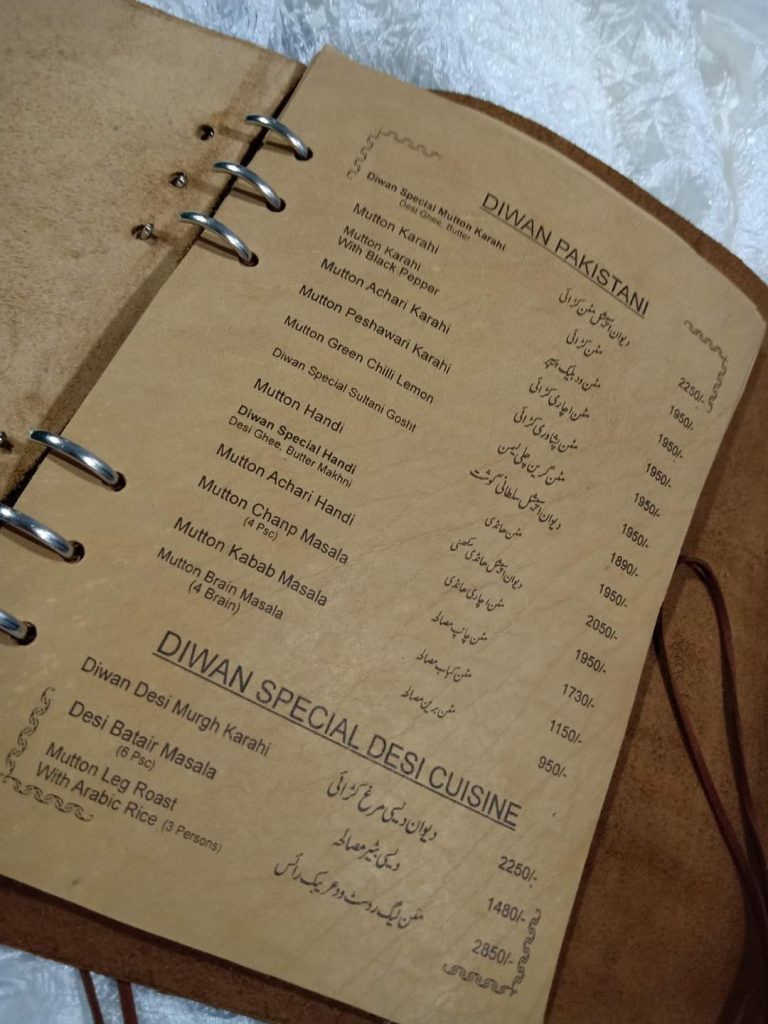 DIWAN PAKISTANI
Diwan Special Mutton Karahi دیوان اسپیشل مٹن کڑائی 2250/-
Desi Ghee, Butter
Mutton Karahi مٹن کڑائی 1950/-
Mutton Karahi مٹن ود بلیک پیپر 1950/-
With Black Pepper
Mutton Achari Karahi مٹن اچاری کڑائی 1950/-
Mutton Peshawari Karahi مٹن پشاوری کڑائی 1950/-
Mutton Green Chilli Lemon مٹن گرین چلی لیمن 1950/-
Diwan Special Sultani Gosht دیوان اسپیشل سلطانی گوشت 1890/-
Mutton Handi مٹن ھانڈی 1950/-
Diwan Special Handi دیوان اسپیشل ھانڈی مکھنی 2050/-
Desi Ghee, Butter Makhni
Mutton Achari Handi مٹن اچاری ھانڈی 1950/-
Mutton Chanp Masala مٹن چانپ مصالحہ 1730/-
(4 Psc)
Mutton Kabab Masala مٹن کباب مصالحہ 1150/-
Mutton Brain Masala مٹن برین مصالحہ 950/-
(4 Brain)
DIWAN SPECIAL DESI CUISINE
Diwan Desi Murgh Karahi دیوان دیسی مرغ کڑائی 2250/-
Desi Batair Masala دیسی بٹیر مصالحہ 1480/-
(6 Psc)
Mutton Leg Roast مٹن لیگ روسٹ ود عریبک رائس 2850/-
With Arabic Rice (3 Persons)